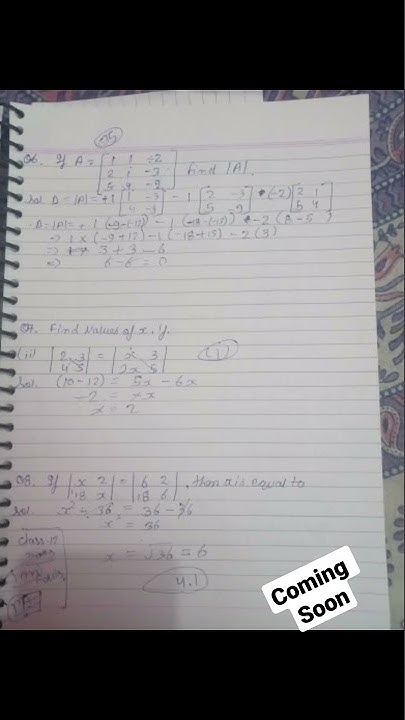 (75)
Q6. If A = [1 1 -2
2 1 -3
5 4 -9] find |A|.
sol. D = |A| = +1 [1 -3
4 -9] - 1 [2 -3
5 -9] + (-2) [2 1
5 4]
D = |A| = + 1 (-9-(-12)) - 1 (-18-(-15)) - 2 (8-5)
⇒ 1 x (-9+12) - 1 (-18+15) - 2 (3)
⇒ 3 + 3 - 6
⇒ 6-6 = 0
Q7. Find values of x. If.
(ii) |2 3
4 5| = |x 3
2x 5|
sol. (10-12) = 5x - 6x
-2 = -x
x = 2
Q8. If |x 2
18 x| = |6 2
18 6|, then x is equal to
sol. x² - 36 = 36 - 36
x² = 36
x = √36 = 6
4.1
class-12
Coming
Soon